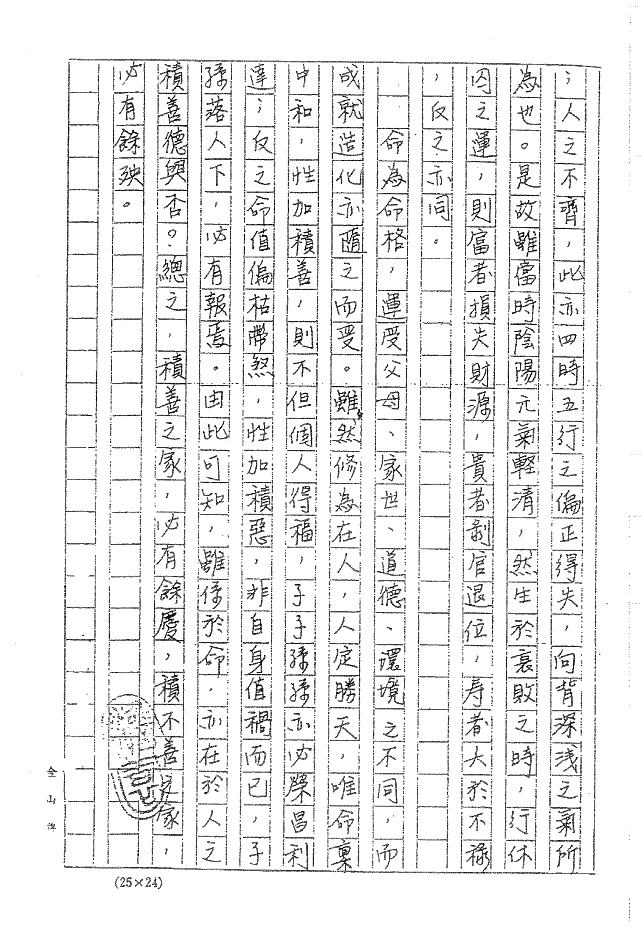 ；人之不齊，此亦四時五行之偏正得失，向背深浅之氣所
為也。是故雖當時陰陽元氣輕清，然生於衰敗之時，行休
囚之運，則富者損失財源，貴者剥官退位，寿者大於不祿
，反之亦同。
命為命格，運受父母、家世、道德、環境之不同，而
成就造化亦隨之而受。雖然修為在人，人定勝天，唯命稟
中和，性加積善，則不但個人得福，子子孫孫亦必榮昌利
達；反之命值偏枯帶煞，性加積惡，非自身值禍而已，子
孫落人下，必有報焉。由此可知，雖係於命，亦在於人之
積善德與否？總之，積善之家，必有餘慶，積不善之家，
必有餘殃。
金山牌
(25×24)